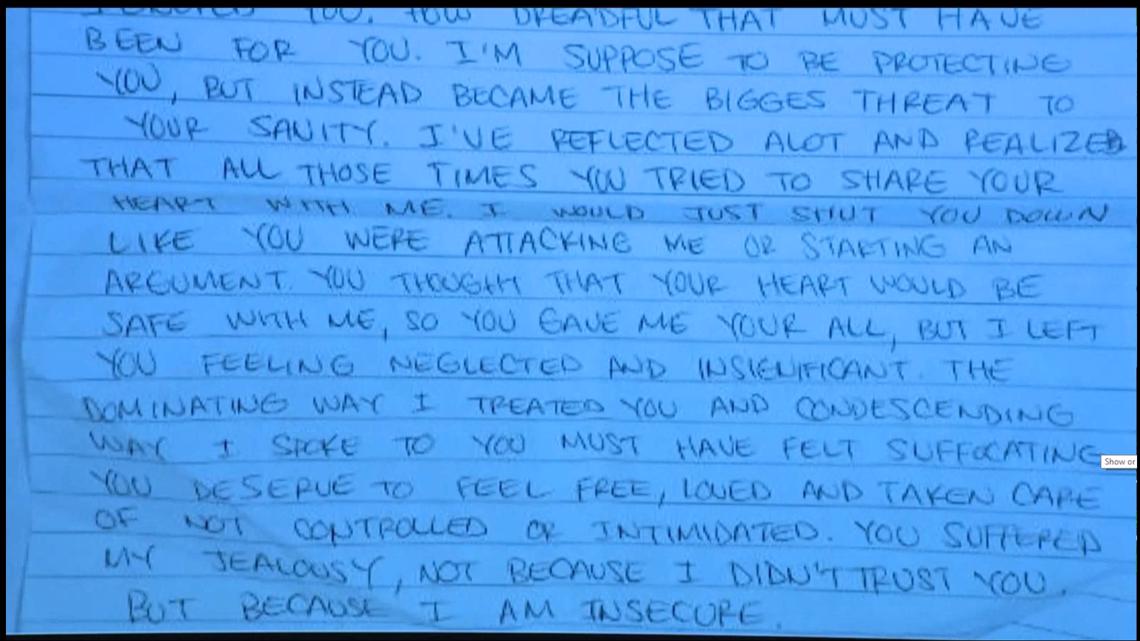 YOU. HOW DREADFUL THAT MUST HAVE
BEEN FOR YOU. I'M SUPPOSE TO BE PROTECTING
YOU, BUT INSTEAD BECAME THE BIGGES THREAT TO
YOUR SANITY. I'VE REFLECTED ALOT AND REALIZED
THAT ALL THOSE TIMES YOU TRIED TO SHARE YOUR
HEART WITH ME. I WOULD JUST SHUT YOU DOWN
LIKE YOU WERE ATTACKING ME OR STARTING AN
ARGUMENT. YOU THOUGHT THAT YOUR HEART WOULD BE
SAFE WITH ME, SO YOU GAVE ME YOUR ALL, BUT I LEFT
YOU FEELING NEGLECTED AND INSIGNIFICANT. THE
DOMINATING WAY I TREATED YOU AND CONDESCENDING
WAY I SPOKE TO YOU MUST HAVE FELT SUFFOCATING
Show or
YOU DESERVE TO FEEL FREE, LOVED AND TAKEN CARE
OF NOT CONTROLLED OR INTIMIDATED. YOU SUFFERED
MY JEALOUSY, NOT BECAUSE I DIDN'T TRUST YOU.
BUT BECAUSE I AM INSECURE.